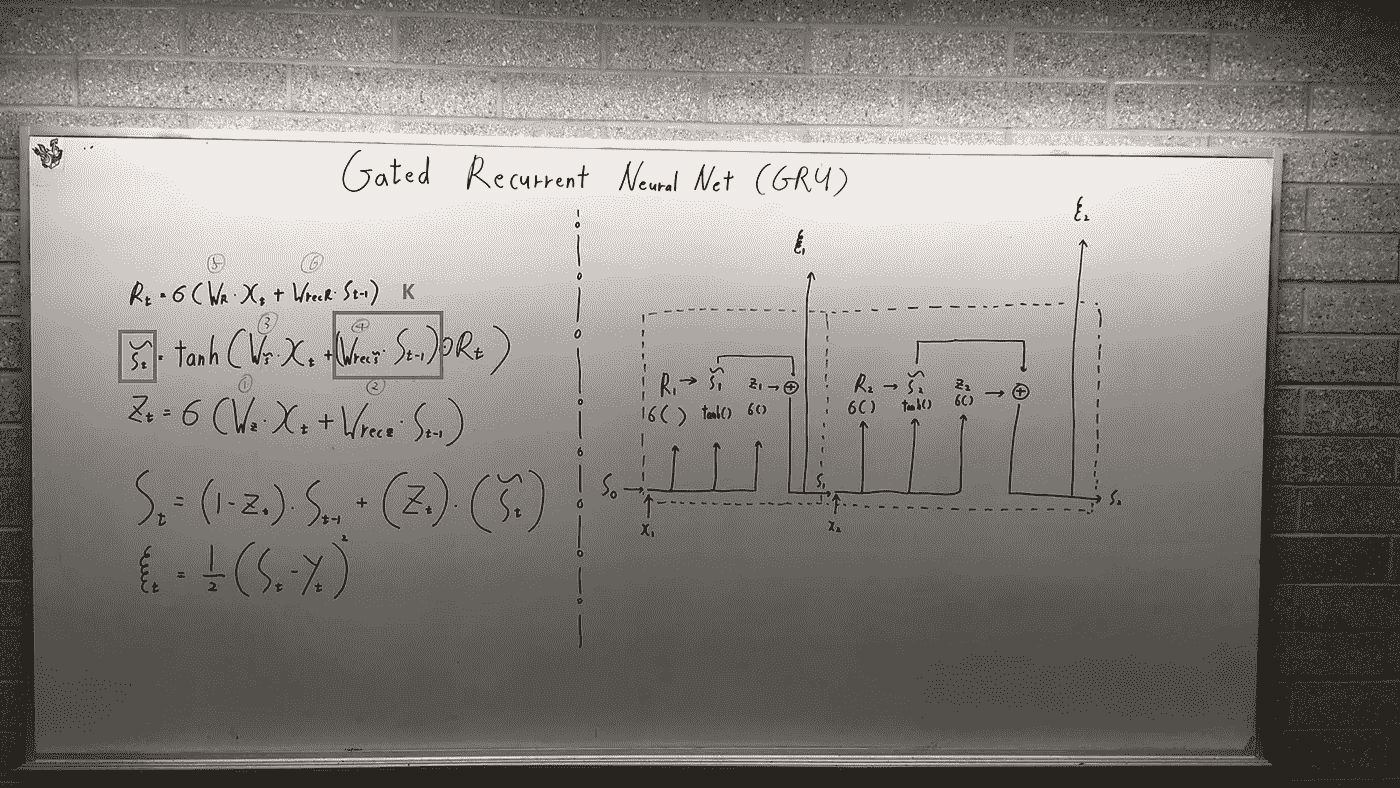 Gated Recurrent Neural Net (GRU)
⑤ ⑥
R_t = σ(W_R · X_t + W_recR · S_t-1) K
③ ④
S̃_t = tanh(W_s̃ · X_t + (W_recs̃ · S_t-1) ⊙ R_t)
① ②
Z_t = σ(W_z · X_t + W_recz · S_t-1)
S_t = (1 - Z_t) · S_t-1 + (Z_t) · (S̃_t)
ξ_t = 1/2 (S_t - Y_t)²
ξ_1
ξ_2
R_1 → S̃_1 Z_1 → ⊕
σ() tanh() σ()
R_2 → S̃_2 Z_2 → ⊕
σ() tanh() σ()
S_0
S_1
S_2
X_1
X_2